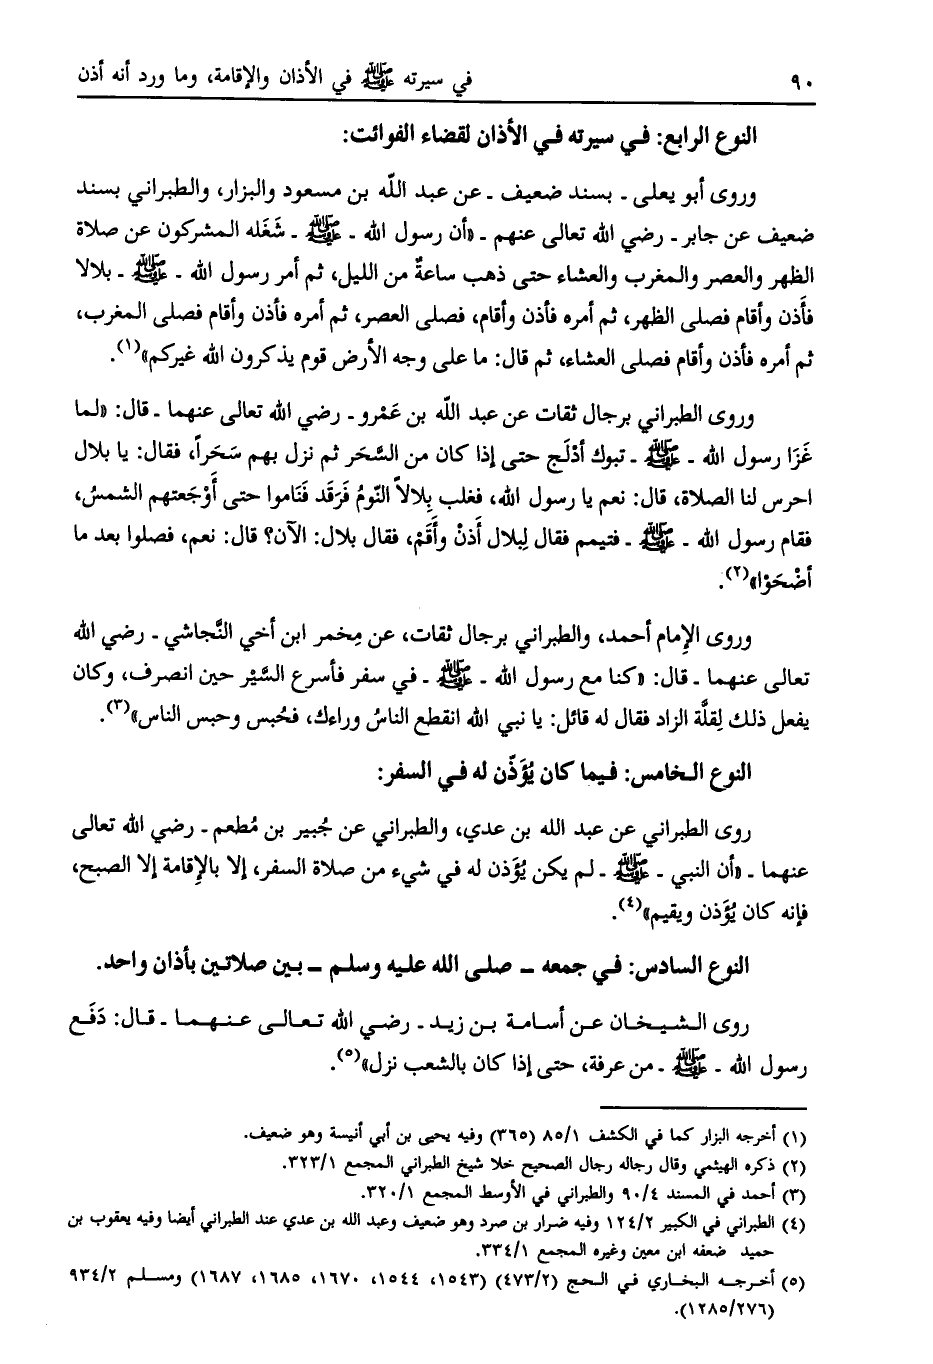 ٩٠ في سيرته ﷺ في الأذان والإقامة، وما ورد أنه أذن
النوع الرابع: في سيرته في الأذان لقضاء الفوائت:
وروى أبو يعلى ـ بسند ضعيف ـ عن عبد اللّه بن مسعود والبزار، والطبراني بسند
ضعيف عن جابر ـ رضي الله تعالى عنهم ـ «أن رسول الله ـ ﷺ ـ شَغَله المشركون عن صلاة
الظهر والعصر والمغرب والعشاء حتى ذهب ساعةٌ من الليل، ثم أمر رسول الله ـ ﷺ ـ بلالا
فأَذن وأقام فصلى الظهر، ثم أمره فأذن وأقام، فصلى العصر، ثم أمره فأذن وأقام فصلى المغرب،
ثم أمره فأذن وأقام فصلى العشاء، ثم قال: ما على وجه الأرض قوم يذكرون الله غيركم»(١).
وروى الطبراني برجال ثقات عن عبد اللّه بن عَمْرو ـ رضي الله تعالى عنهما ـ قال: «لما
غَزَا رسول الله ـ ﷺ ـ تبوك أدْلَج حتى إذا كان من السَّحَر ثم نزل بهم سَحَراً، فقال: يا بلال
احرس لنا الصلاة، قال: نعم يا رسول الله، فغلب بِلالاً النّومُ فَرَقَد فَنَاموا حتى أَوْجَعتهم الشمسُ،
فقام رسول الله ـ ﷺ ـ فتيمم فقال لِبلال أَذنْ وأَقَمْ، فقال بلال: الآن؟ قال: نعم، فصلوا بعد ما
أضْحَوْا»(٢).
وروى الإمام أحمد، والطبراني برجال ثقات، عن مِخمر ابن أخي النَّجاشي ـ رضي الله
تعالى عنهما ـ قال: «كنا مع رسول الله ـ ﷺ ـ في سفر فأسرع السَّيْر حين انصرف، وكان
يفعل ذلك لِقلَّة الزاد فقال له قائل: يا نبي الله انقطع الناسُ وراءك، فحُبس وحبس الناس»(٣).
النوع الخامس: فيما كان يُؤَذّن له في السفر:
روى الطبراني عن عبد الله بن عدي، والطبراني عن جُبير بن مُطعم ـ رضي الله تعالى
عنهما ـ «أن النبي ـ ﷺ ـ لم يكن يُؤَذن له في شيء من صلاة السفر، إلا بالإقامة إلا الصبح،
فإنه كان يُؤَذن ويقيم»(٤).
النوع السادس: في جمعه ـ صلى الله عليه وسلم ـ بين صلاتين بأذان واحد.
روى الشيخان عن أسامة بن زيد ـ رضي الله تعالى عنهما ـ قال: دَفَع
رسول الله ـ ﷺ ـ من عرفة، حتى إذا كان بالشعب نزل»(٥).
(١) أخرجه البزار كما في الكشف ٨٥/١ (٣٦٥) وفيه يحيى بن أبي أنيسة وهو ضعيف.
(٢) ذكره الهيثمي وقال رجاله رجال الصحيح خلا شيخ الطبراني المجمع ٣٢٣/١.
(٣) أحمد في المسند ٩٠/٤ والطبراني في الأوسط المجمع ٣٢٠/١.
(٤) الطبراني في الكبير ١٢٤/٢ وفيه ضرار بن صرد وهو ضعيف وعبد الله بن عدي عند الطبراني أيضا وفيه يعقوب بن
حميد ضعفه ابن معين وغيره المجمع ٣٣٤/١.
(٥) أخرجه البخاري في الحج (٤٧٣/٢) (١٥٤٣، ١٥٤٤، ١٦٧٠، ١٦٨٥، ١٦٨٧) ومسلم ٩٣٤/٢
(١٢٨٥/٢٧٦).